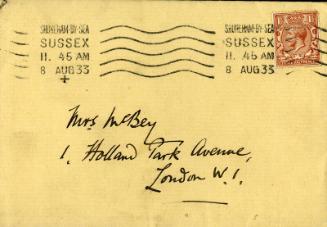 SHOREHAM-BY-SEA SHOREHAM-BY-SEA
SUSSEX SUSSEX
11. 45 AM 11. 45 AM
8 AUG 33 8 AUG 33
Mrs McBey
1, Holland Park Avenue,
London W.1.